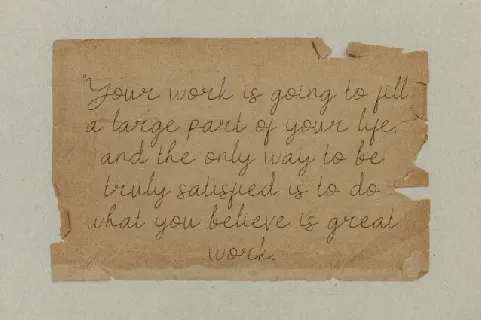 "Your work is going to fill
a large part of your life,
and the only way to be
truly satisfied is to do
what you believe is great
work.